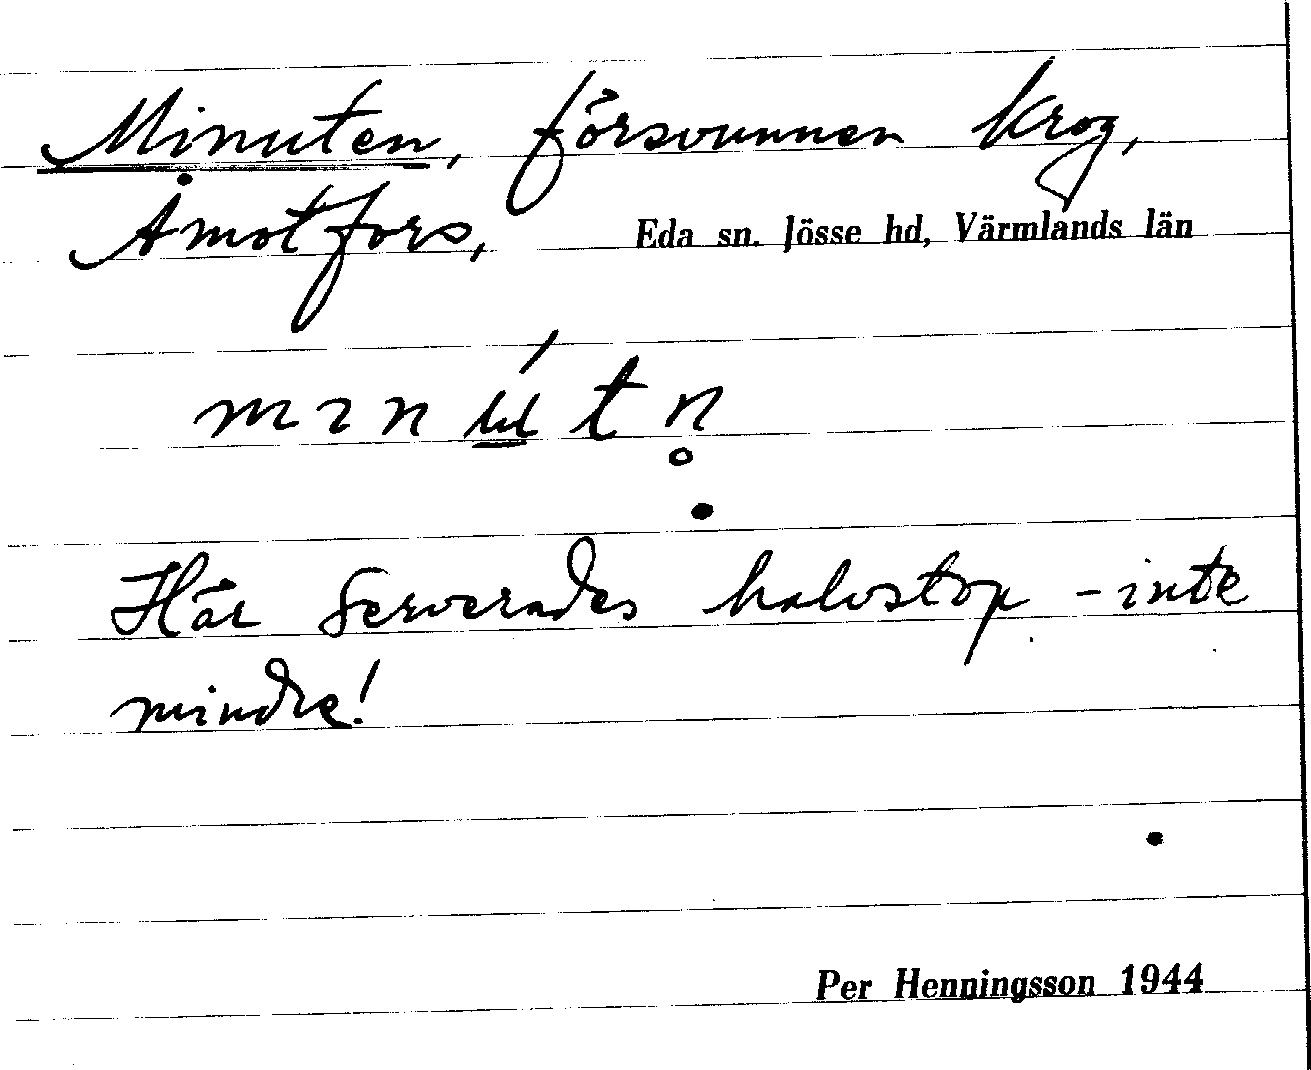 Minuten, försvunnen krog,
Åmotfors, Eda sn. Jösse hd, Värmlands län
mınút̲n̥
Här serverades halvstop - inte
mindre!
Per Henningsson 1944